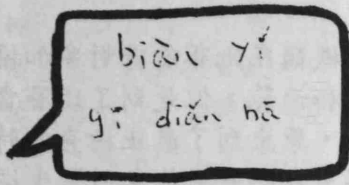 biàn yí
yī diǎn nā